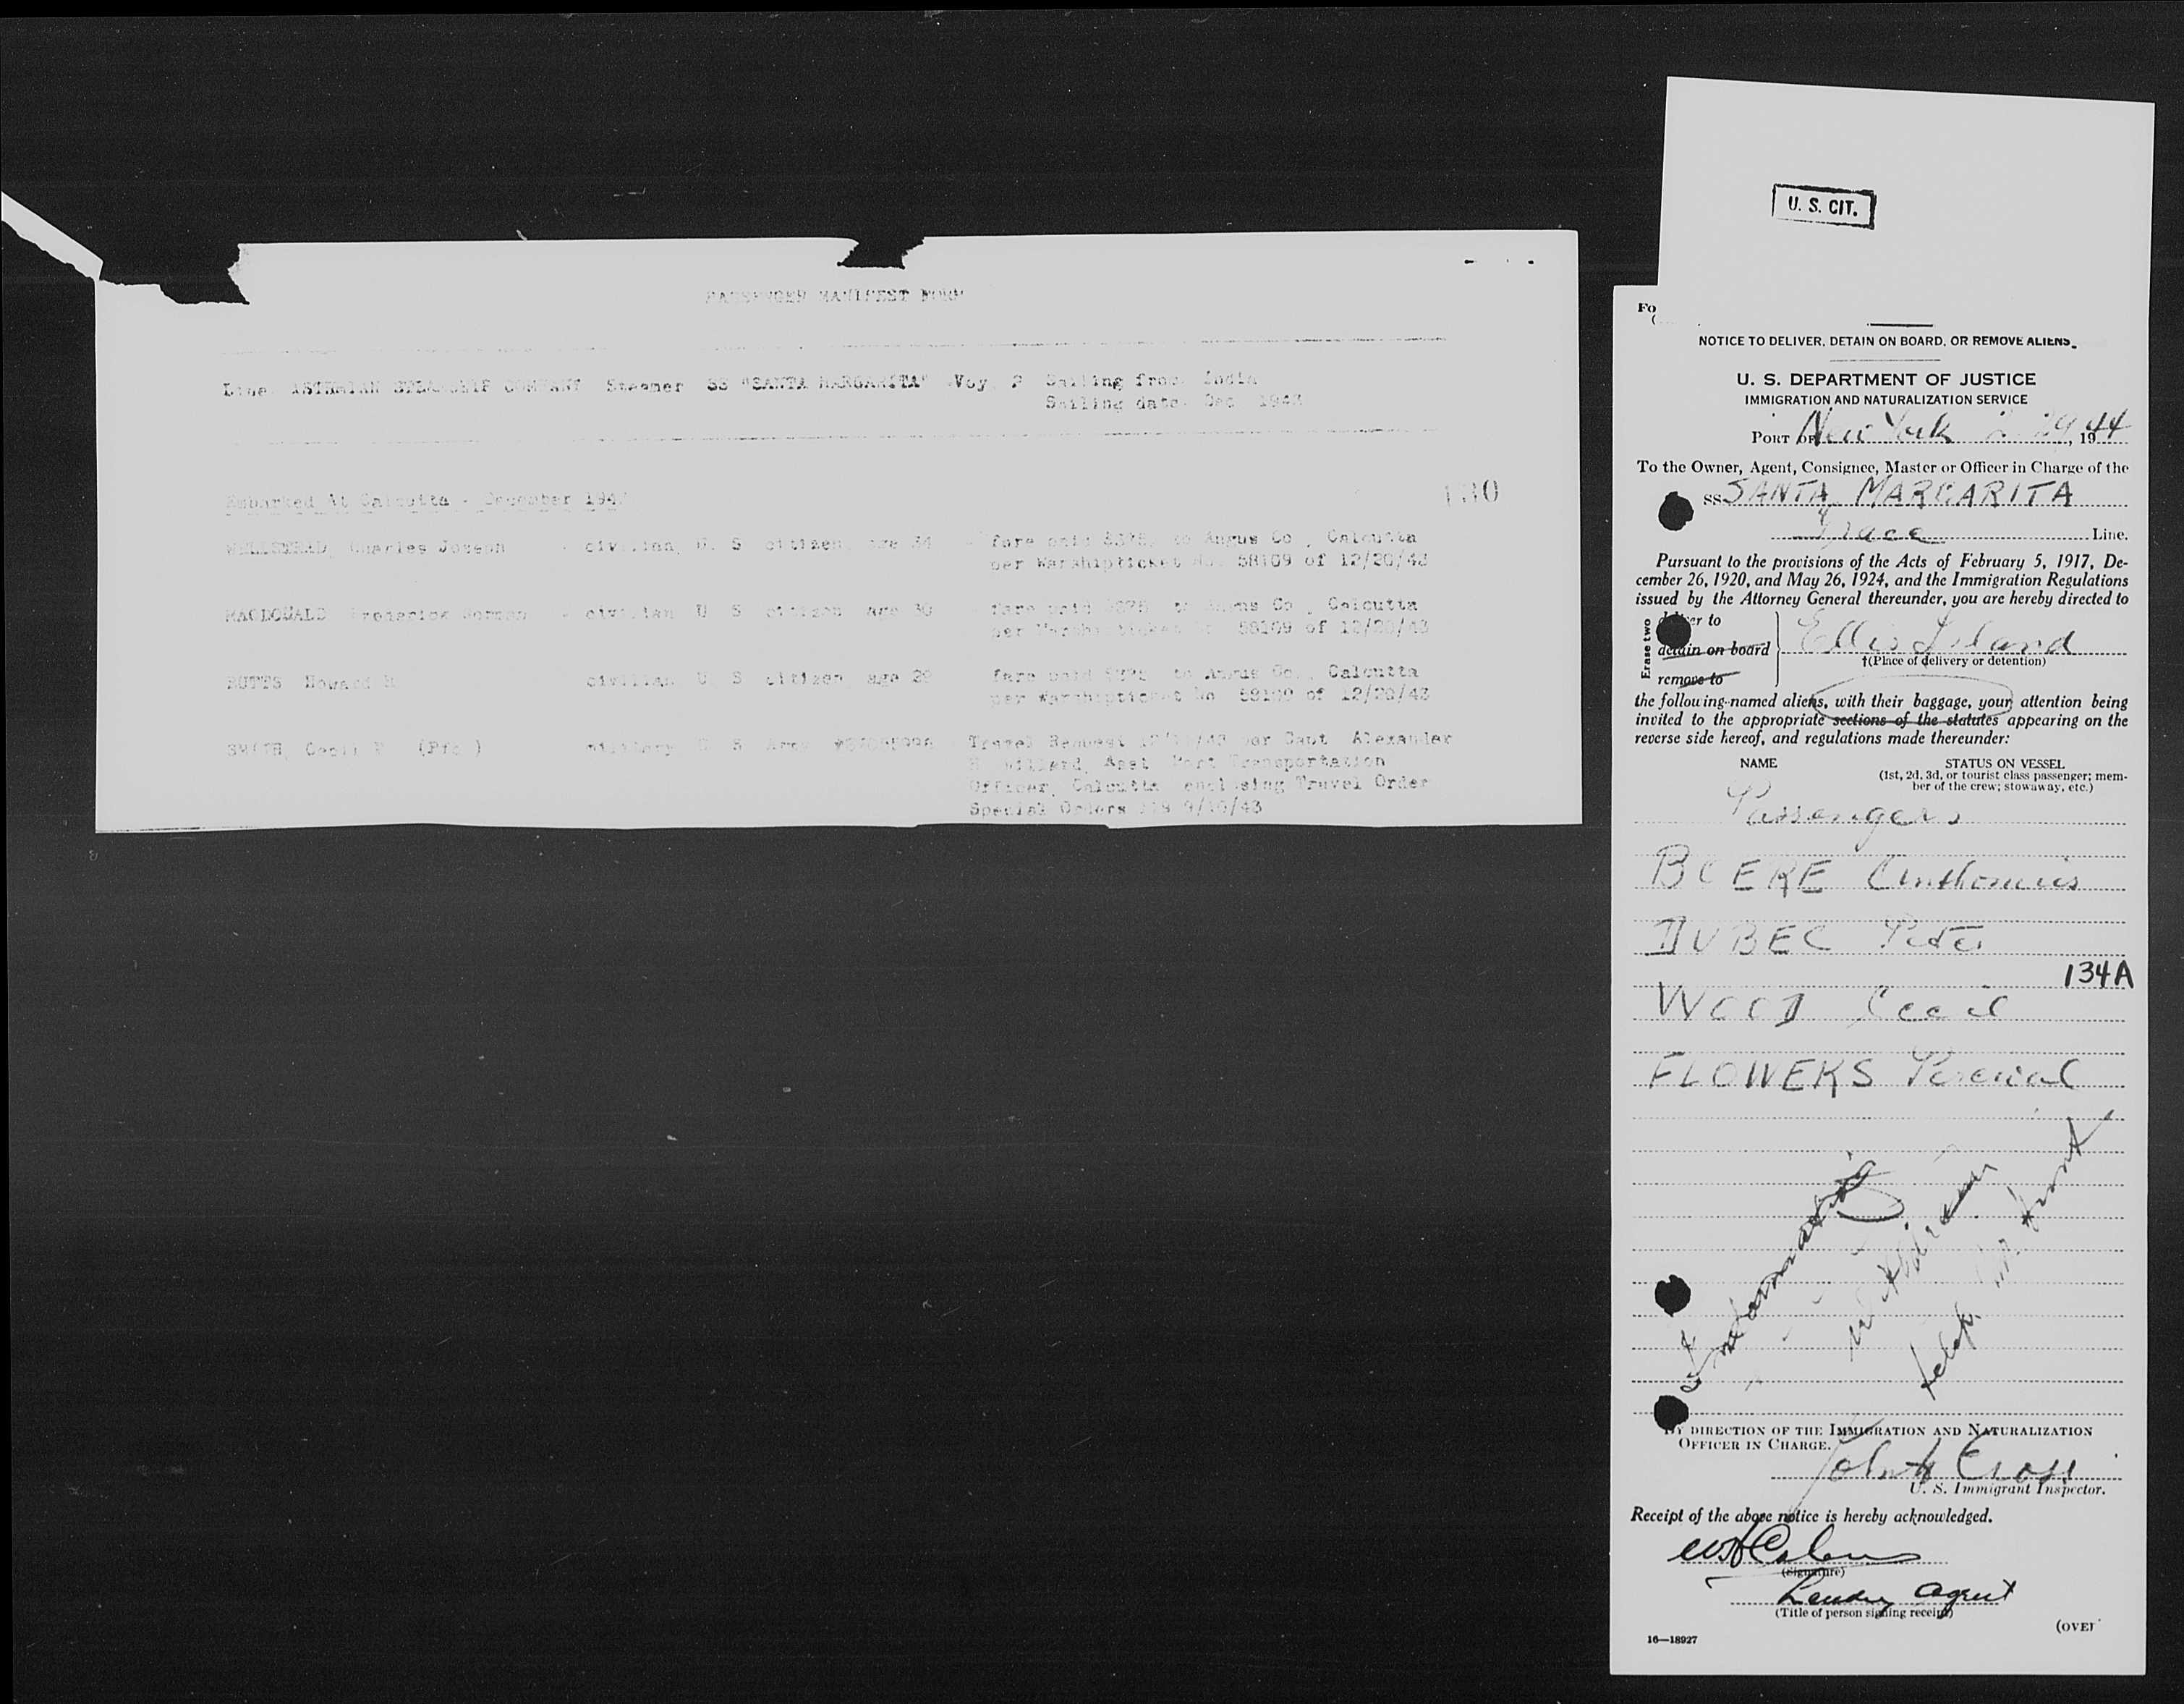 PASSENGER MANIFEST FORM
Line ISTHMIAN STEAMSHIP COMPANY Steamer SS "SANTA MARGARITA" Voy 2 Sailing from India
Sailing date Dec 1943
Embarked At Calcutta - December 194
1340
Charles Joseph - civilian, U. S citizen age 34 - fare paid $375. to Angus Co , Calcutta
per Warshipticket No. 58109 of 12/20/43
MACDONALD Frederick Norman - civilian U S citizen age 30 fare paid $375 to Angus Co , Calcutta
per Warshipticket No 58109 of 12/20/43
BUTTS Howard civilian U S citizen age 29 fare paid $375 to Angus Co., Calcutta
per Warshipticket No 58109 of 12/20/43
SMITH, Cecil (Pfc ) military U S Army Travel Request per Capt Alexander
Willard, Asst Port Transportation
Officer, Calcutta enclosing Travel Order
Special Orders 9/10/43
U. S. CIT.
Fo
NOTICE TO DELIVER, DETAIN ON BOARD, OR REMOVE ALIENS
U. S. DEPARTMENT OF JUSTICE
IMMIGRATION AND NATURALIZATION SERVICE
PORT OF New York 2 29, 1944
To the Owner, Agent, Consignee, Master or Officer in Charge of the
SS SANTA MARGARITA
Grace Line.
Pursuant to the provisions of the Acts of February 5, 1917, De-
cember 26, 1920, and May 26, 1924, and the Immigration Regulations
issued by the Attorney General thereunder, you are hereby directed to
Erase two
deliver to
detain on board
remove to
Ellis Island
†(Place of delivery or detention)
the following-named aliens, with their baggage, your attention being
invited to the appropriate sections of the statutes appearing on the
reverse side hereof, and regulations made thereunder:
NAME STATUS ON VESSEL
(1st, 2d, 3d, or tourist class passenger; mem-
ber of the crew; stowaway, etc.)
Passengers
BOERE Anthonius
DUBEC Peter
134A
WOOD Cecil
FLOWERS Percival
withdrawn
BY DIRECTION OF THE IMMIGRATION AND NATURALIZATION
OFFICER IN CHARGE.
John Cross
U. S. Immigrant Inspector.
Receipt of the above notice is hereby acknowledged.
(Signature)
Agent
(Title of person signing receipt)
(OVER
16—18927